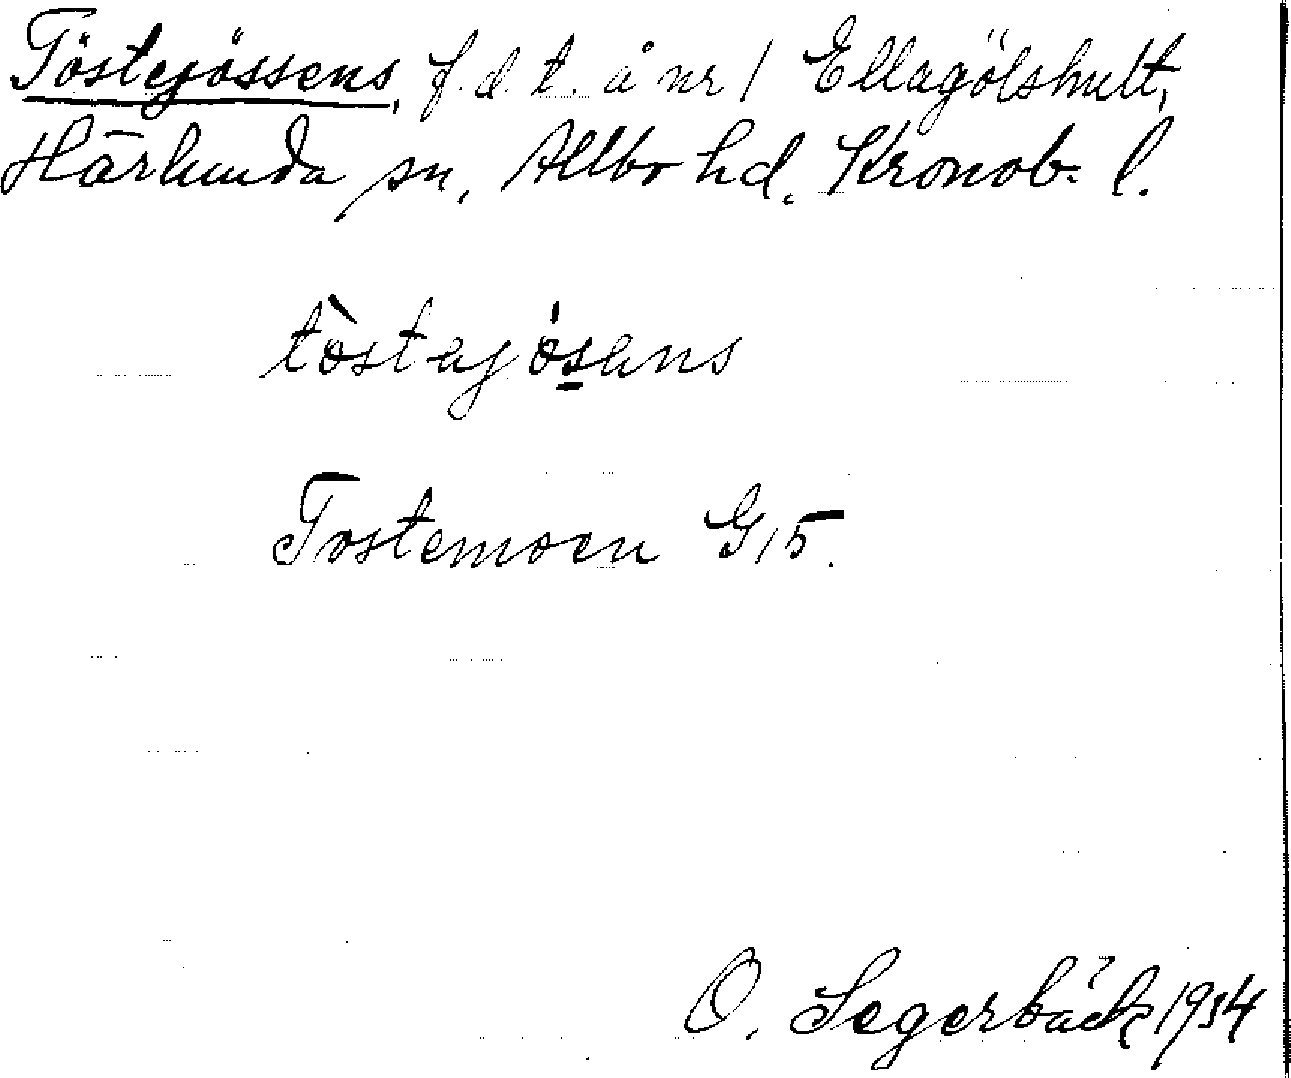 Töstejössens, f.d.t. å nr 1 Ellagölshult,
Härlunda sn, Allbo hd. Kronob. l.
tòstejósens
Tostemoen G15.
O. Segerbäck 1934